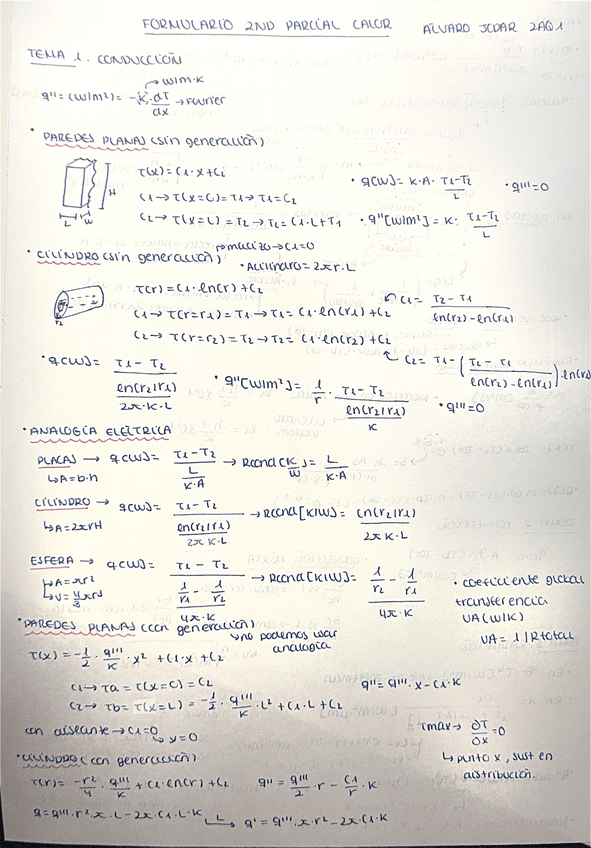 FORMULARIO 2ND PARCIAL CALOR ALVARO JODAR 2AQ1
TEMA 1. CONDUCCIÓN
→ W/m·K
q'' = (W/m²) = -K · dT/dx → Fourier
• PAREDES PLANAS (sin generación)
H L W
T(x) = C1·x + C2
C1 → T(x=0) = T1 → T1 = C2
C2 → T(x=L) = T2 → T2 = C1·L + T1
• q(W) = K·A· (T1-T2)/L • q''' = 0
• q''[W/m²] = K· (T1-T2)/L
→ macizo → C1=0
• CILINDRO (sin generación)
• Acilindro = 2πr·L
r2
T(r) = C1·ln(r) + C2
C1 → T(r=r1) = T1 → T1 = C1·ln(r1) + C2
C2 → T(r=r2) = T2 → T2 = C1·ln(r2) + C2
C1 = (T2-T1)/(ln(r2)-ln(r1))
C2 = T1 - ((T2-T1)/(ln(r2)-ln(r1)))·ln(r1)
• q(W) = (T1-T2)/(ln(r2/r1)/(2π·K·L)) • q''[W/m²] = 1/r · (T1-T2)/(ln(r2/r1)/K) • q''' = 0
• ANALOGÍA ELÉCTRICA
PLACAS → q(W) = (T1-T2)/(L/(K·A)) → Rcond[K/W] = L/(K·A)
↳ A=b·h
CILINDRO → q(W) = (T1-T2)/(ln(r2/r1)/(2π·K·L)) → Rcond[K/W] = ln(r2/r1)/(2π·K·L)
↳ A=2πrH
ESFERA → q(W) = (T1-T2)/((1/r1 - 1/r2)/(4π·K)) → Rcond[K/W] = (1/r2 - 1/r1)/(4π·K)
↳ A=πr²
↳ V=4/3 πr³
• coeficiente global
transferencia
UA(W/K)
UA = 1/Rtotal
• PAREDES PLANAS (con generación)
↳ no podemos usar
analogía
T(x) = -1/2 · q'''/K · x² + C1·x + C2
C1 → Ta = T(x=0) = C2
C2 → Tb = T(x=L) = -1/2 · q'''/K · L² + C1·L + C2
q'' = q'''·x - C1·K
con aislante → C1=0
↳ x=0
Tmax → ∂T/∂x = 0
↳ punto x, sust en
distribución.
• CILINDRO (con generación)
T(r) = -r²/4 · q'''/K + C1·ln(r) + C2 q'' = q'''/2 · r - C1/r · K
q = q'''·r²·π·L - 2π·C1·L·K L→ q' = q'''·π·r² - 2π·C1·K